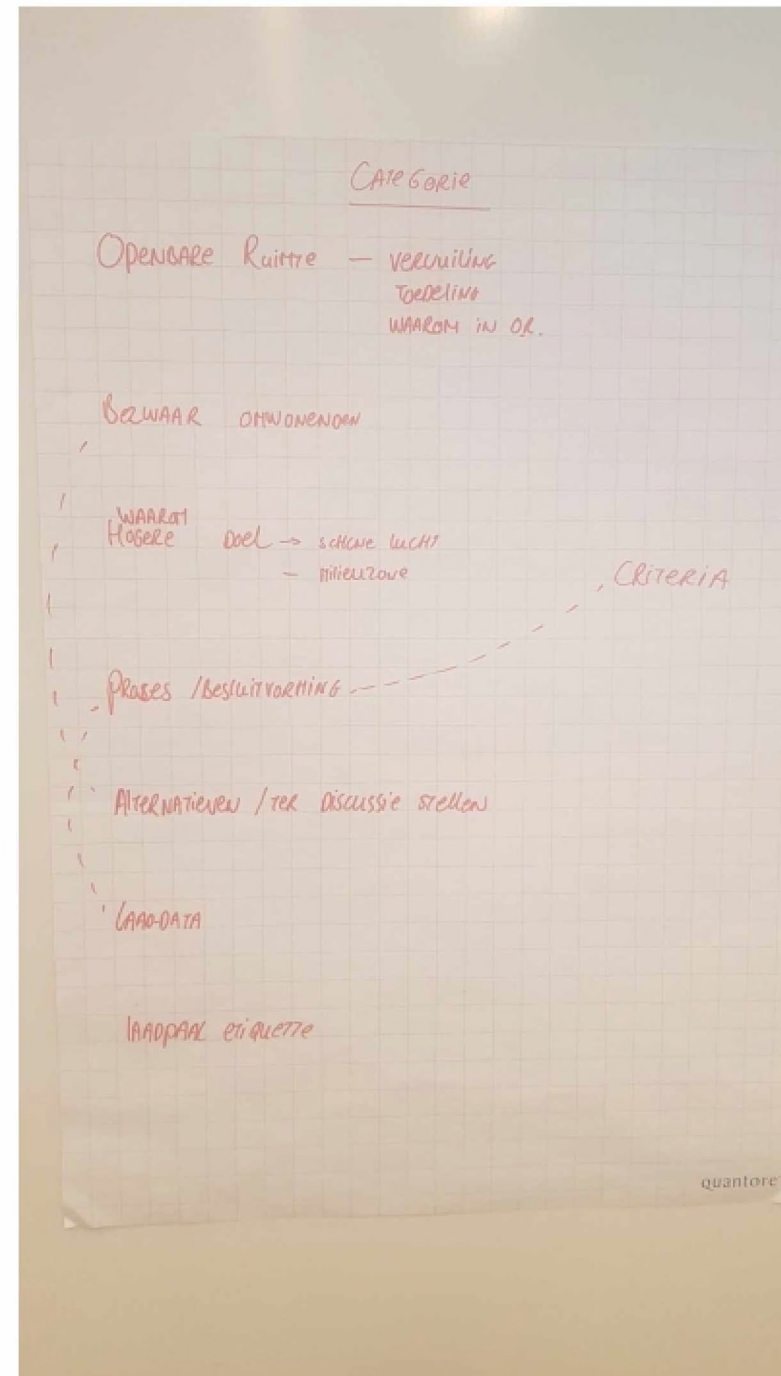 CATEGORIE
OPENBARE RUIMTE — VERVUILING
TOEDELING
WAAROM IN OR.
BEZWAAR OMWONENDEN
WAAROM
HOGERE DOEL → SCHONE LUCHT
— MILIEUZONE
CRITERIA
PROSES / BESLUITVORMING
ALTERNATIEVEN / TER DISCUSSIE STELLEN
LAAD-DATA
LAADPAAL ETIQUETTE
quantore